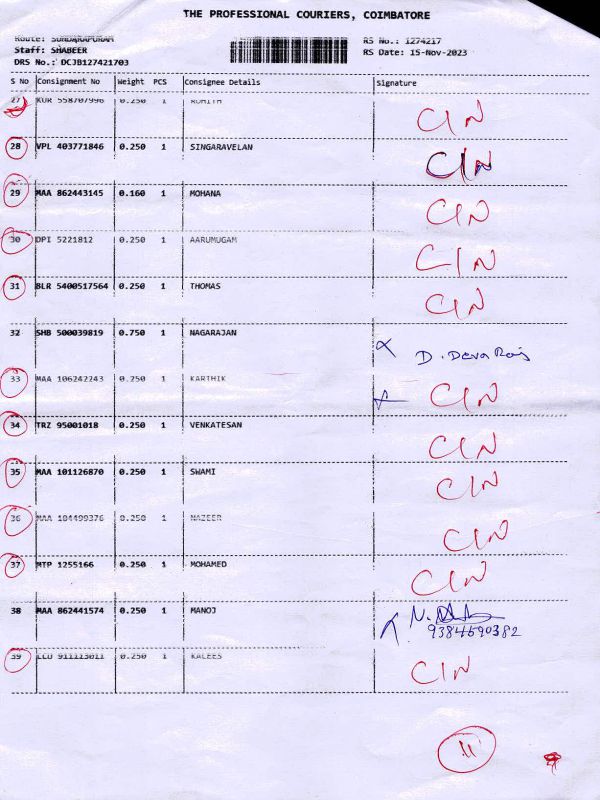 THE PROFESSIONAL COURIERS, COIMBATORE
Route: SUNDARAPURAM RS No.: 1274217
Staff: SHABEER RS Date: 15-Nov-2023
DRS No.: DCJB127421703
S No Consignment No Weight PCS Consignee Details Signature
27 KUR 558707996 0.250 1 ROHITH CIN
28 VPL 403771846 0.250 1 SINGARAVELAN CIN
29 MAA 862443145 0.160 1 MOHANA CIN
30 DPI 5221812 0.250 1 AARUMUGAM CIN
31 BLR 5400517564 0.250 1 THOMAS CIN
32 SHB 500039819 0.750 1 NAGARAJAN D. Deva Raj
33 MAA 106242243 0.250 1 KARTHIK CIN
34 TRZ 95001018 0.250 1 VENKATESAN CIN
35 MAA 101126870 0.250 1 SWAMI CIN
36 MAA 104499376 0.250 1 NAZEER CIN
37 MTP 1255166 0.250 1 MOHAMED CIN
38 MAA 862441574 0.250 1 MANOJ N.
9384690382
39 CCU 911123011 0.250 1 KALEES CIN
11